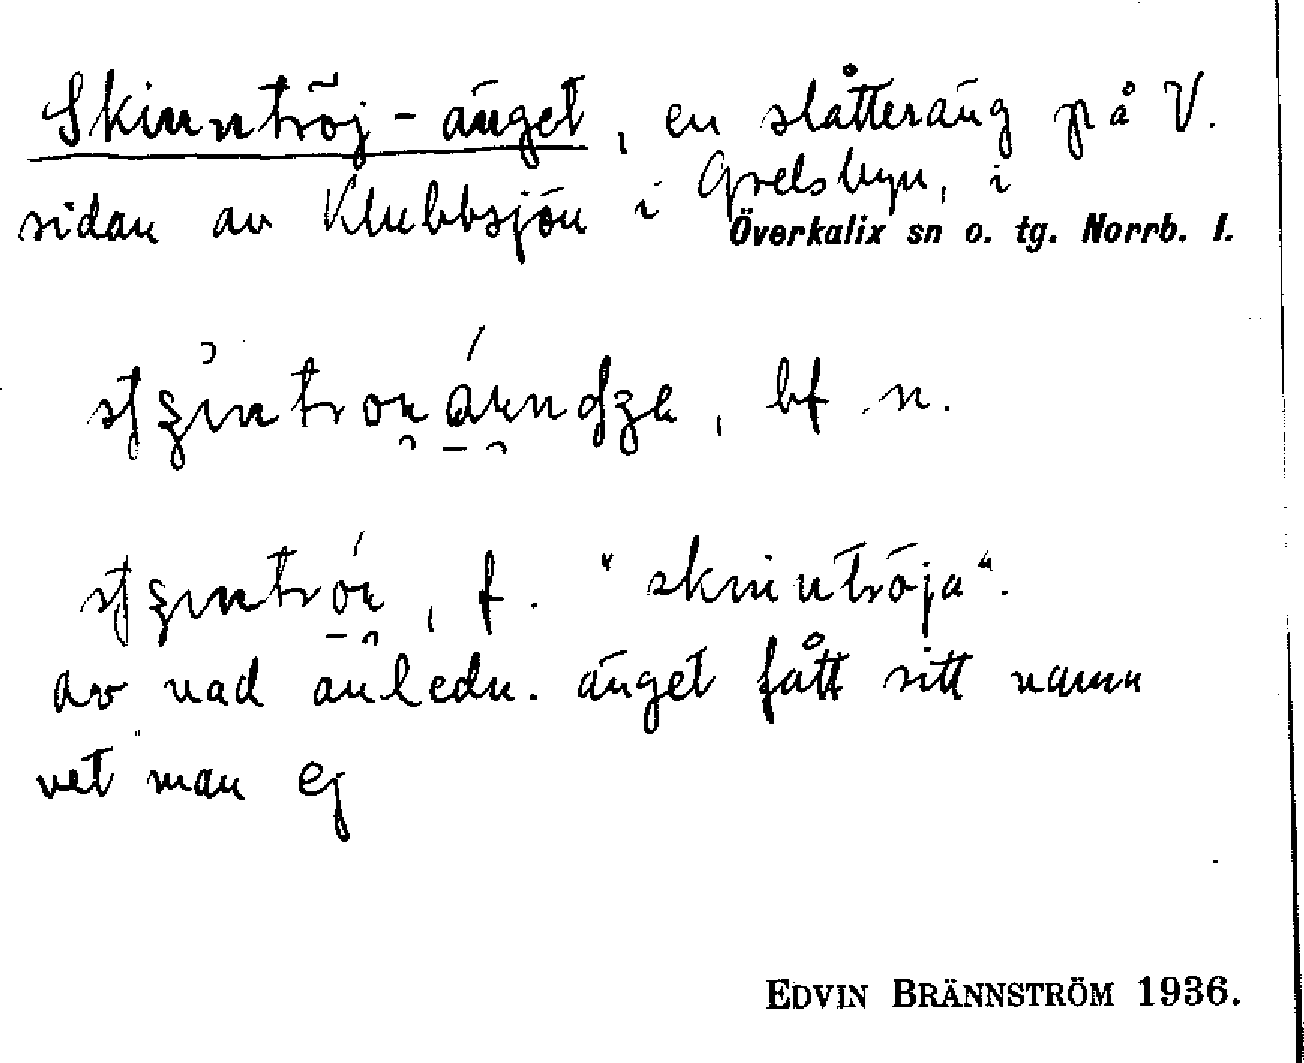 Skinntröj-änget, en slåtteräng på V.
sidan av Klubbsjön i Grelsbyn, i
Överkalix sn o. tg. Norrb. l.
, bf n.
, f. "skinntröja".
Av vad anledn. änget fått sitt namn
vet man ej
EDVIN BRÄNNSTRÖM 1936.